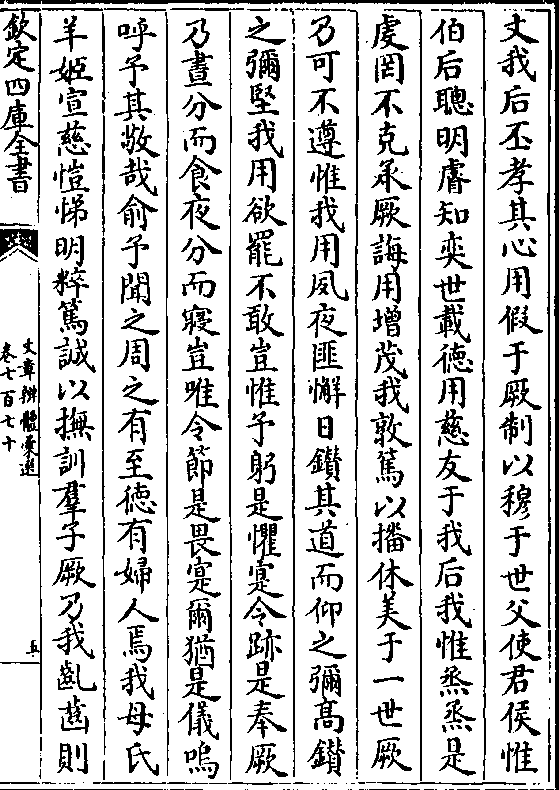 文我后丕孝其心用假于厥制以穆于世父使君侯惟
伯后聰明睿知奕世載徳用慈友于我后我惟烝烝是
虔罔不克承厥誨用增茂我敦篤以播休美于一世厥
乃可不遵惟我用夙夜匪懈日鑚其道而仰之彌高鑚
之彌堅我用欲罷不敢豈惟予躬是懼寔令跡是奉厥
乃晝分而食夜分而寢豈唯令節是畏寔爾猶是儀嗚
呼予其敬哉俞予聞之周之有至徳有婦人焉我母氏
羊姬宣慈愷悌明粹篤誠以撫訓羣子厥乃我齔齒則
欽定四庫全書
文章辨體彙選
卷七百七十
五